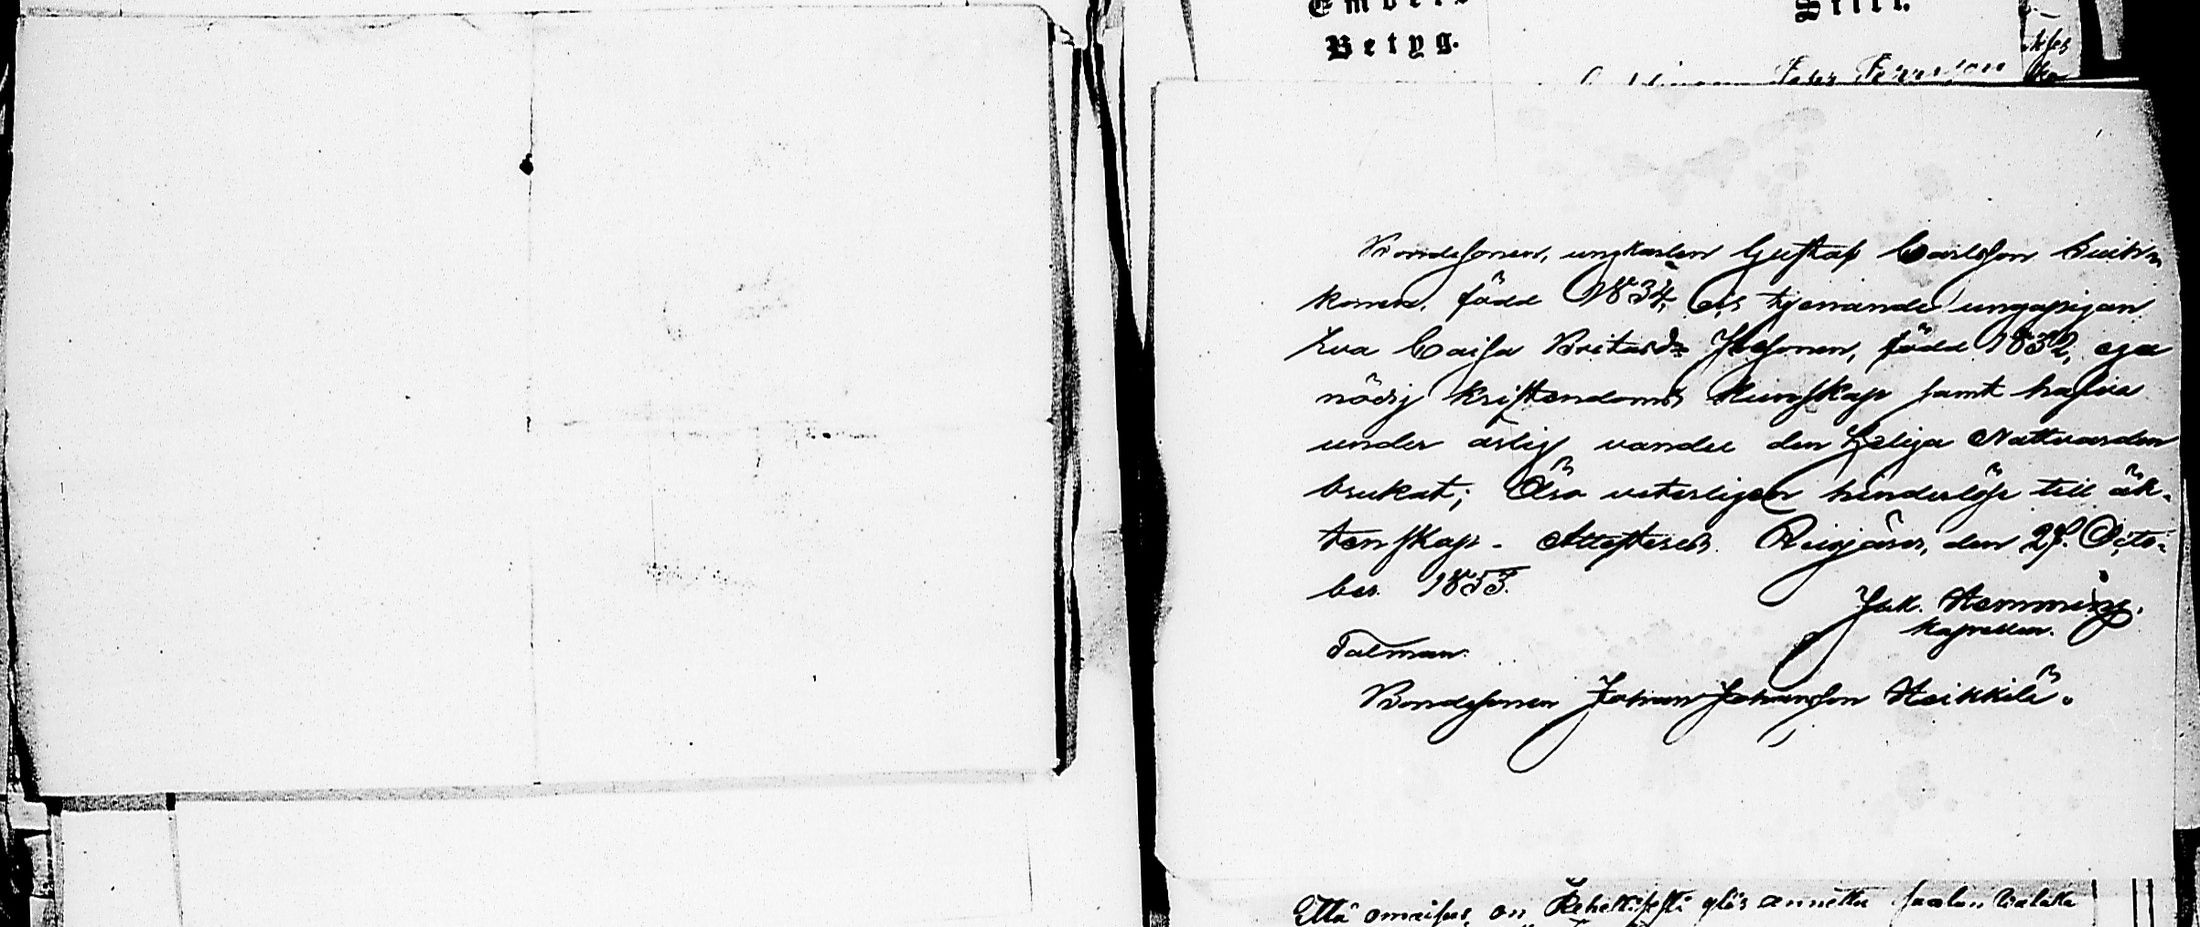 Embets
Stift.
Betyg.
Bondesonen, ungkarlen Gustaf Carlsson
konen, född 1834, och tjenande ungapigan
Eva Caisa Britasdr Ilosonen, född 1832, ega
nödig kristendoms kunskap samt hafva
under ärlig vandel den Heliga Nattvarden
brukat; Äro veterligen hinderlöse till äk-
tenskap. Attesteras. Reisjärvi, den 27. Octo-
ber 1853.
Jak. Hemming.
kapellan.
Talman
Bondesonen Johan Johansson Heikkilä.
Että omaisus on ylös annettu